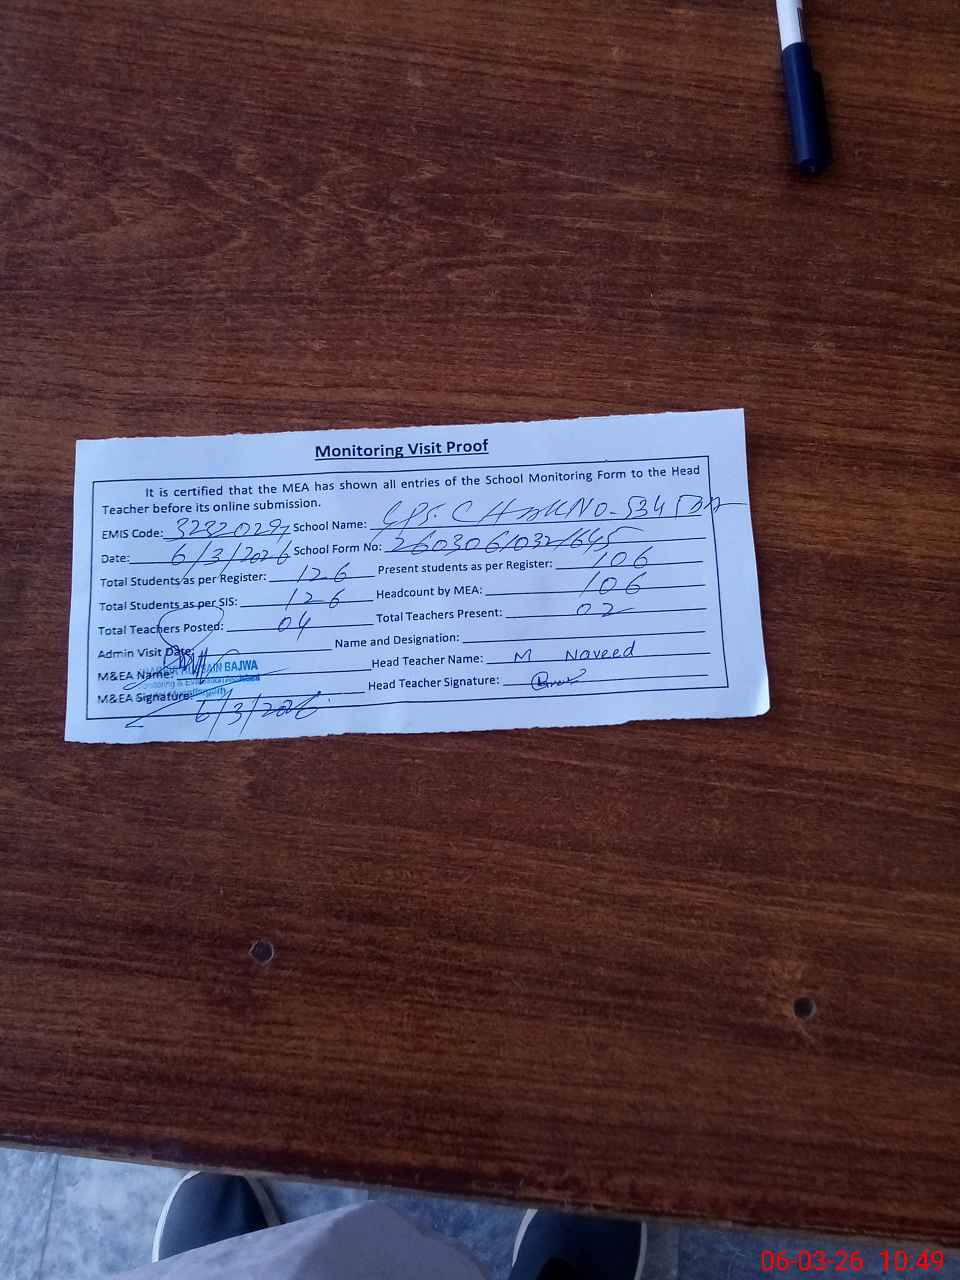 Monitoring Visit Proof
It is certified that the MEA has shown all entries of the School Monitoring Form to the Head
Teacher before its online submission.
EMIS Code: School Name:
Date: 6/3/2026 School Form No:
Total Students as per Register: 126 Present students as per Register: 106
Total Students as per SIS: 126 Headcount by MEA: 106
Total Teachers Posted: 04 Total Teachers Present: 02
Admin Visit Date: Name and Designation:
M&EA Name: BAJWA Head Teacher Name: M Naveed
M&EA Signature: Head Teacher Signature:
6/3/2026
06-03-26 10:49